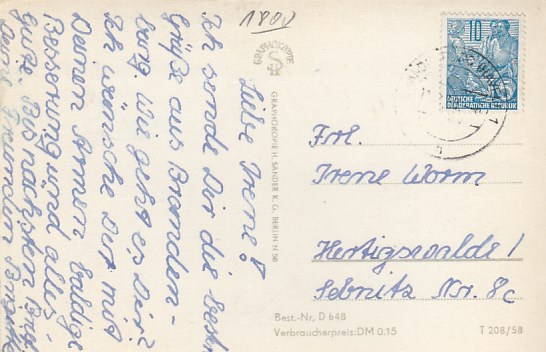 1800
Liebe Irene!
Ich sende Dir die best
Grüße aus Branden-
burg. Wie geht es Dir?
Ich wünsche Dir mit
Deinen Armen baldige
Besserung und alles
Gute. Bis nächsten
Deine Freundin
GRAPHOKOPIE
GRAPHOKOPIE H. SANDER K. G. BERLIN N 58
10
DEUTSCHE
DEMOKRATISCHE REPUBLIK
Frl.
Irene Worm
Hertigswalde /
Sebnitz Nr. 8c
Best.-Nr. D 648
Verbraucherpreis: DM 0,15
T 208/58